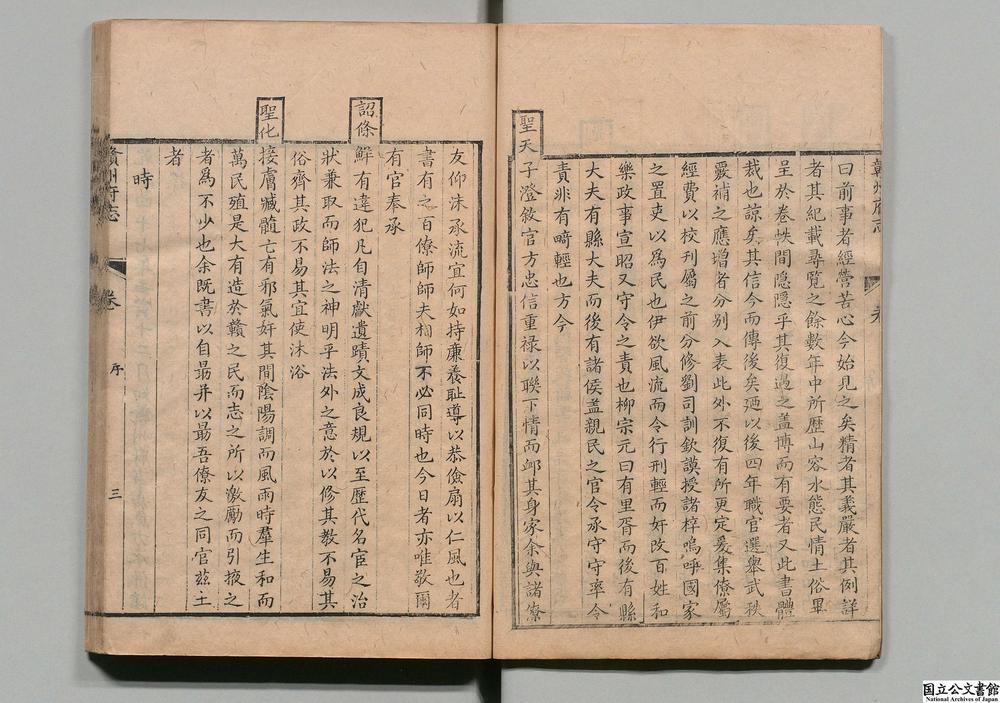 贛州府志
曰前事者經營苦心今始見之矣精者其義嚴者其例詳
者其紀載尋覽之餘數年中所歷山容水態民情土俗畢
呈於卷帙間隱隱乎其復過之蓋博而有要者又此書體
裁也諒矣其信今而傳後矣廼以後四年職官選舉武秩
襃補之應增者分別入表此外不復有所更定爰集僚屬
經費以校刊屬之前分修劉司訓欽謨授諸梓嗚呼國家
之置吏以爲民也伊欲風流而令行刑輕而奸改百姓和
樂政事宣昭又守令之責也柳宗元曰有里胥而後有縣
大夫有縣大夫而後有諸侯蓋親民之官令承守守率令
責非有畸輕也方今
聖天子澄敘官方忠信重祿以聯下情而卹其身家余與諸僚
友仰沐承流宜何如持廉養耻導以恭儉扇以仁風也者
書有之百僚師師夫相師不必同時也今日者亦唯敬爾
有官奉承
詔條鮮有違犯凡自清獻遺蹟文成良規以至歷代名宦之治
狀兼取而師法之神明乎法外之意於以修其教不易其
俗齊其政不易其宜使沐浴
聖化接膚臧髓亡有邪氣奸其間陰陽調而風雨時羣生和而
萬民殖是大有造於贛之民而志之所以激勵而引掖之
者爲不少也余既書以自勗并以勗吾僚友之同官茲土
者
時
贛州府志 卷 序 三
国立公文書館
National Archives of Japan